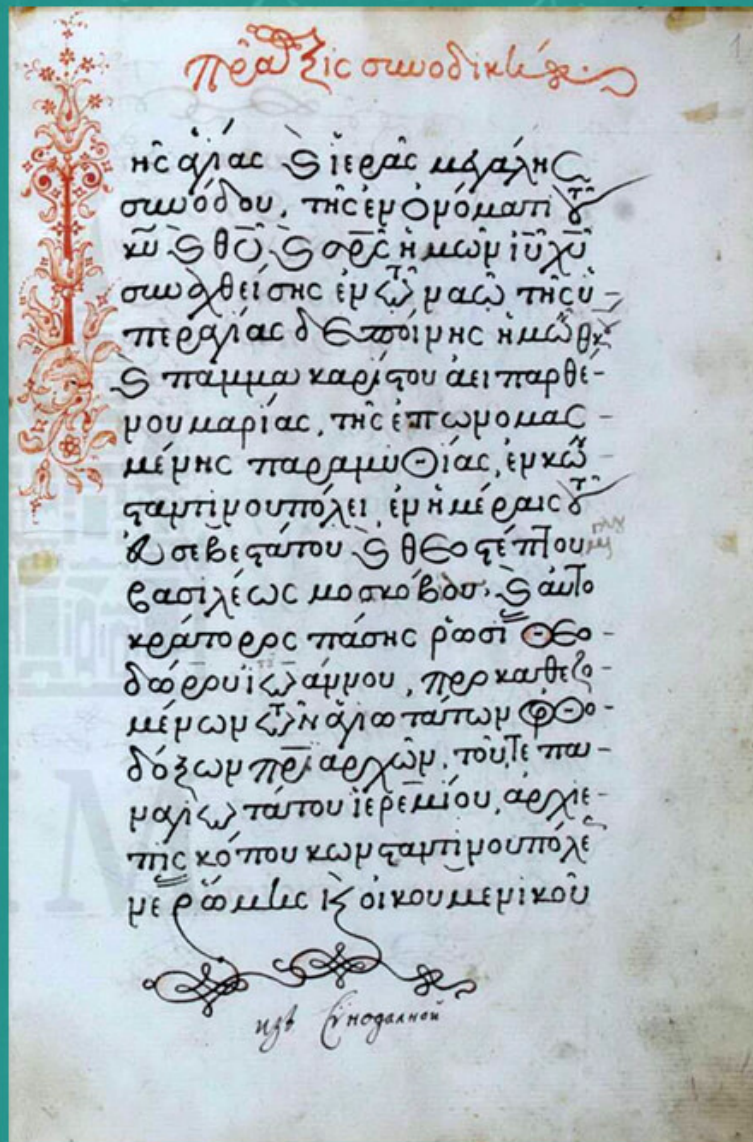 πρᾶξις συνοδική
1
τῆς ἁγίας καὶ ἱερᾶς μεγάλης
συνόδου, τῆς ἐν ὀνόματι τοῦ
κῦ καὶ θῦ καὶ σρ̅ς ἡμῶν ἰῦ χῦ
συναχθείσης ἐν τῷ ναῷ τῆς ὑ-
περαγίας δεσποίνης ἡμῶν θκου
καὶ παμμακαρίστου ἀειπαρθέ-
νου μαρίας, τῆς ἐπωνομασ-
μένης παραμυθίας, ἐν κων
σταντινουπόλει ἐν ἡμέραις τοῦ
εὐσεβεστάτου καὶ θεοστέπτου
βασιλέως μοσκόβου, καὶ αὐτο
κράτορος πάσης ῥωσί θεο-
δώρου ἰωάννου, προκαθεζο
μένων τῶν ἁγιωτάτων ὀρθο-
δόξων πριαρχῶν, τοῦ, τε πα-
ναγιωτάτου ἱερεμίου, ἀρχιε
πισκόπου κωνσταντινουπόλε
νέ ῥώμης κ οἰκουμενικοῦ
изъ Синодалной